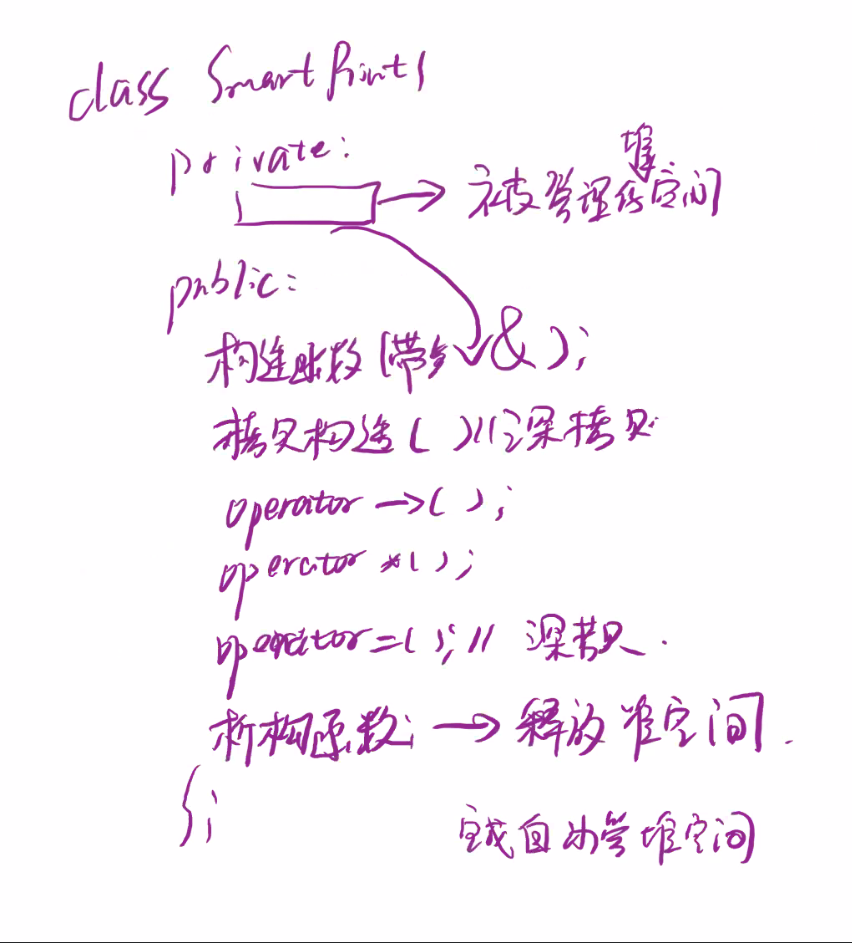 class SmartPoint{
private:
→ 被管理的堆空间
public:
构造函数(带参 & );
拷贝构造( )//深拷贝
operator ->( );
operator *( );
operator=( ); // 深拷贝.
析构函数; → 释放堆空间.
};
完成自动管堆空间